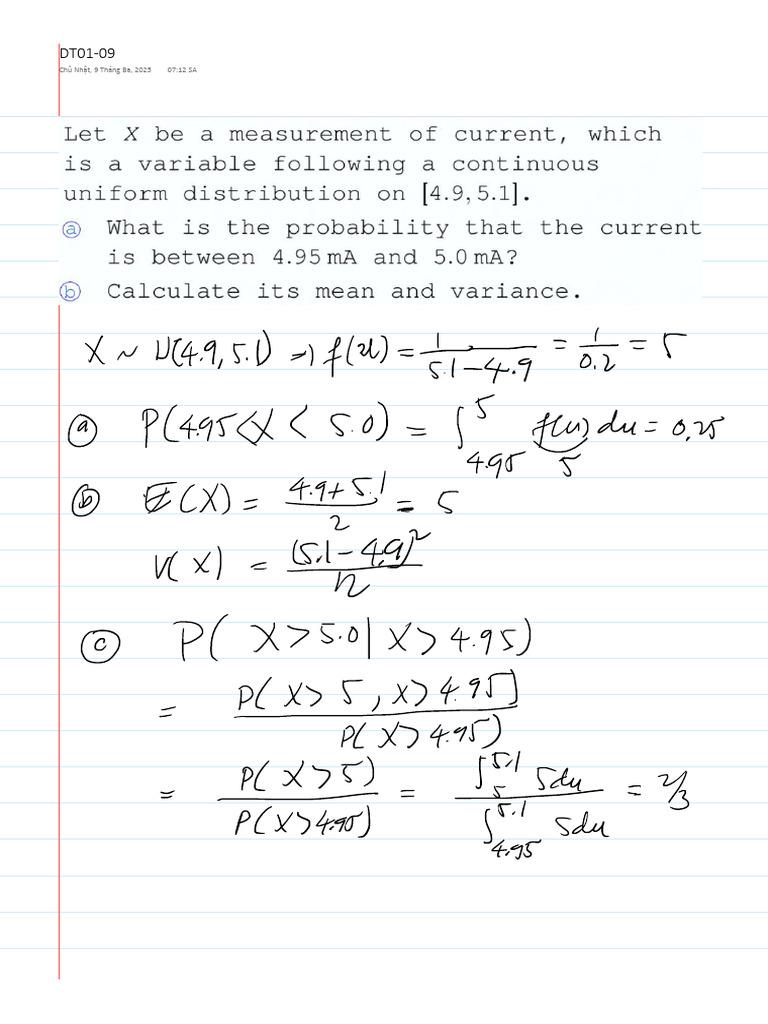 DT01-09
Chủ Nhật, 9 Tháng Ba, 2025 07:12 SA
Let X be a measurement of current, which
is a variable following a continuous
uniform distribution on [4.9, 5.1].
ⓐ What is the probability that the current
is between 4.95 mA and 5.0 mA?
ⓑ Calculate its mean and variance.
X ~ U(4.9, 5.1) => f(x) = 1/(5.1-4.9) = 1/0.2 = 5
ⓐ P(4.95 < X < 5.0) = ∫_{4.95}^{5} f(u) du = 0,25
5
ⓑ E(X) = (4.9+5.1)/2 = 5
V(X) = (5.1-4.9)²/12
ⓒ P(X > 5.0 | X > 4.95)
= P(X > 5, X > 4.95)/P(X > 4.95)
= P(X > 5)/P(X > 4.95) = ∫_{5}^{5.1} 5du / ∫_{4.95}^{5.1} 5du = 2/3